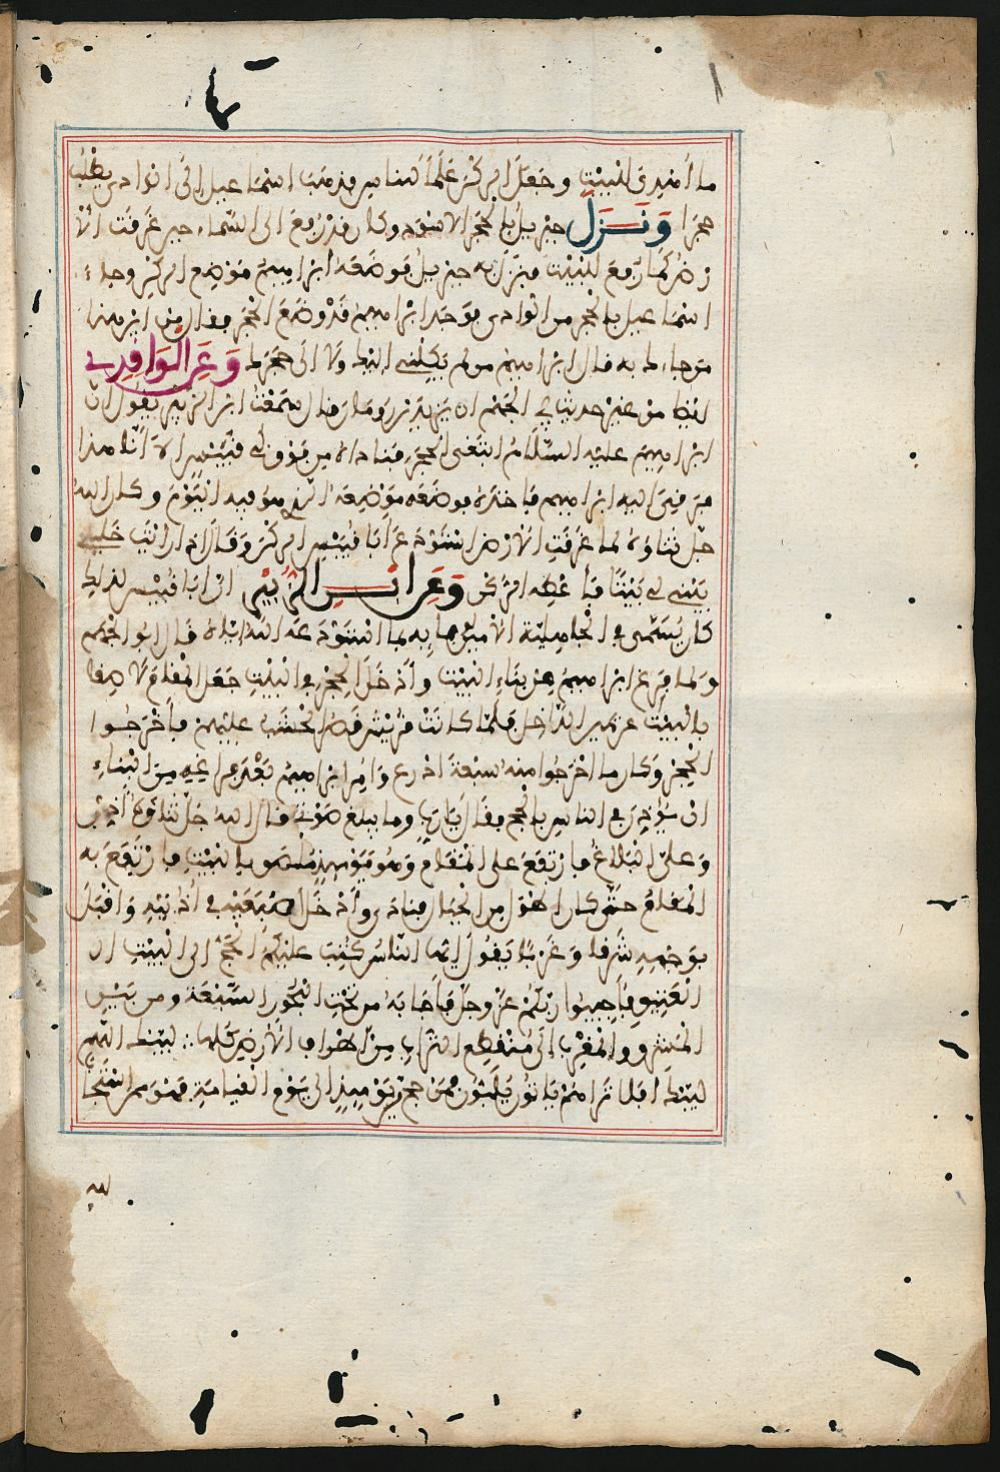 ما أهدي للبيت وجعل الركن علما للناس فذهب إسماعيل إلى الوادي يطلب
حجرا ونزل جبريل بالحجر الأسود وكان قد رفع إلى السماء حين غرقت الأ
رض كما رفع البيت فنزل به جبريل فوضعه إبراهيم موضع الركن وجاء
إسماعيل بالحجر من الوادي فوجد إبراهيم قد وضع الحجر فقال من أين هذا
من جاءك به قال إبراهيم من لم يكلني إليك ولا إلى حجرك وعن الواقدي
أيضا من غير حديث أبي الجهم أن يزيد بن رومان قال سمعت ابن الزبير يقول إن
إبراهيم عليه السلام ابتغى الحجر فناداه من فوق أبي قبيس ألا أنا هذا
فرقي إليه إبراهيم فأخذه فوضعه موضعه الذي هو فيه اليوم وكان الله
جل ثناؤه لما غرقت الأرض استودع أبا قبيس الركن وقال إذا رأيت خليلي
يبني لي بيتا فأعطه الركن وعن ابن الزبير أن أبا قبيس لذلك
كان يسمى في الجاهلية الأمين لحفظه ما استودعه الله إياه قال أبو الجهم
ولما فرغ إبراهيم من بناء البيت وأدخل الحجر في البيت جعل المقام لاصقا
بالبيت عن يمين الداخل فلما كانت قريش قصر الخشب عليهم فأخرجوا
الحجر وكان ما أخرجوا منه سبعة أذرع وأمر إبراهيم بعد فراغه من البناء
أن يؤذن في الناس بالحج فقال يا رب وما يبلغ صوتي قال الله جل ثناؤه أذن
وعلي البلاغ فارتفع على المقام وهو يومئذ ملصق بالبيت فارتفع به
المقام حتى كان أطول من الجبال فنادى وأدخل أصبعيه في أذنيه وأقبل
بوجهه شرقا وغربا يقول أيها الناس كتب عليكم الحج إلى البيت ال
العتيق فأجيبوا ربكم عز وجل فأجابه من تحت البحور السبعة ومن بين
المشرق والمغرب إلى منقطع التراب من أطراف الأرض كلها لبيك اللهم
لبيك أفلا تراهم يأتون يلبون فمن حج من يومئذ إلى يوم القيامة فهو ممن استجا
لله